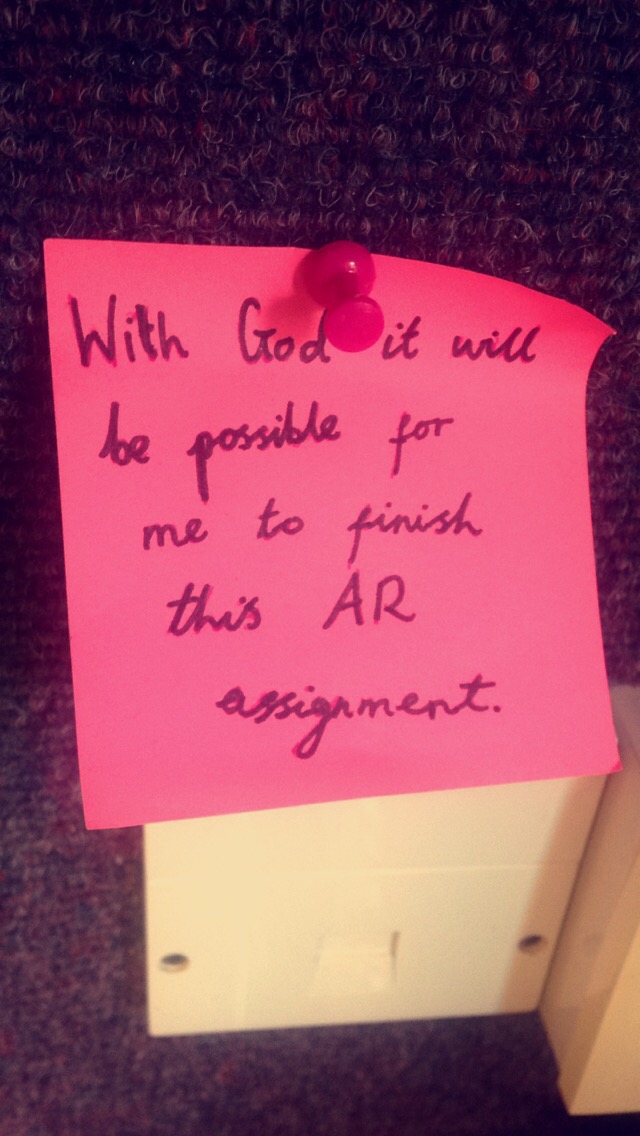 With God it will
be possible for
me to finish
this AR
assignment.